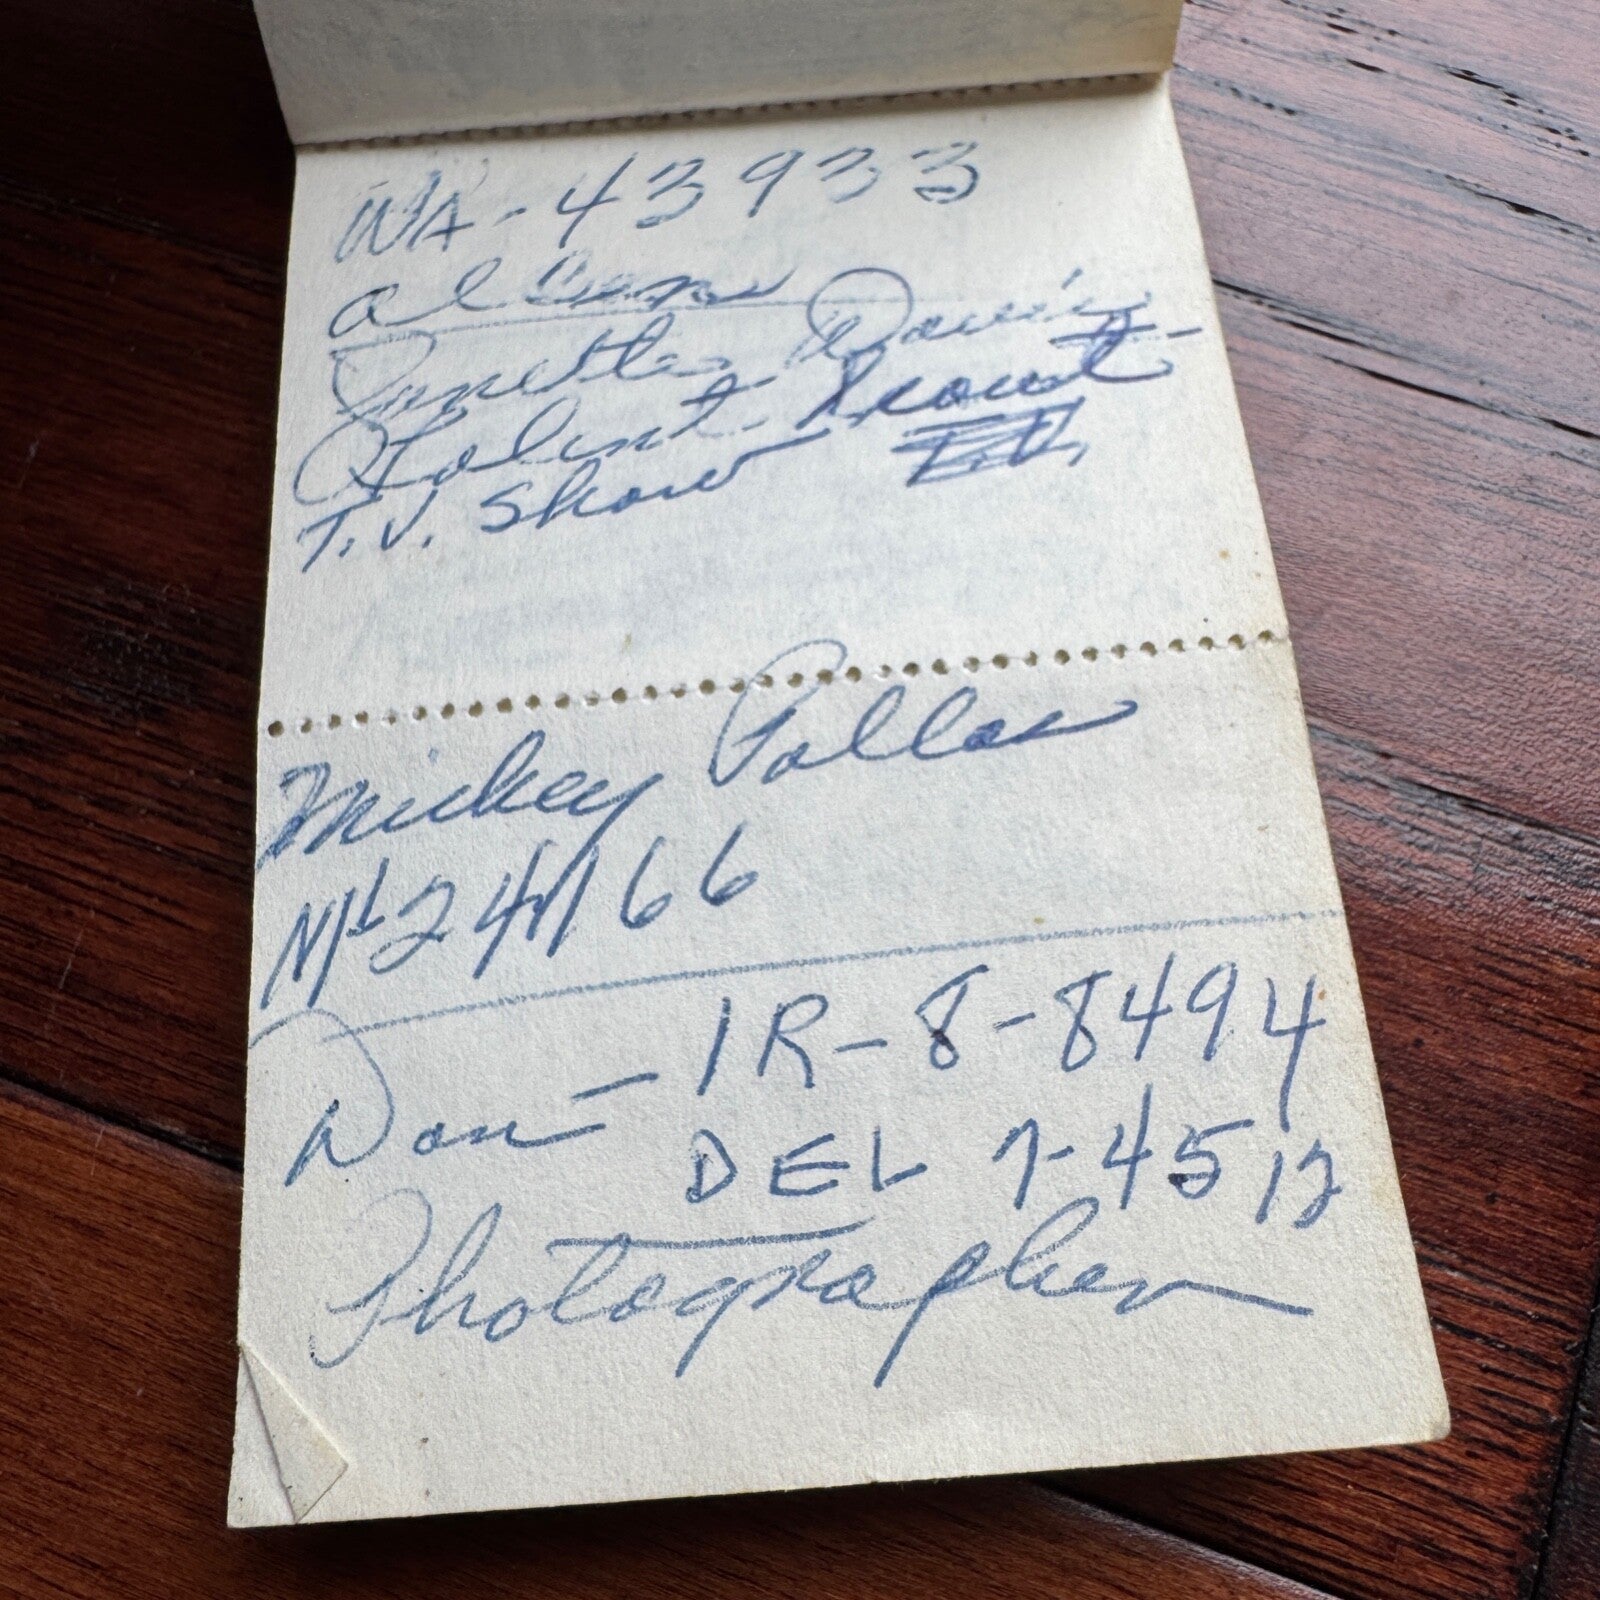 WA-43933
Al
Janette Davis
Talent Scout
T.V. Show T.V.
Mickey Pallas
24166
Don - IR-8-8494
DEL 7-4512
Photographer